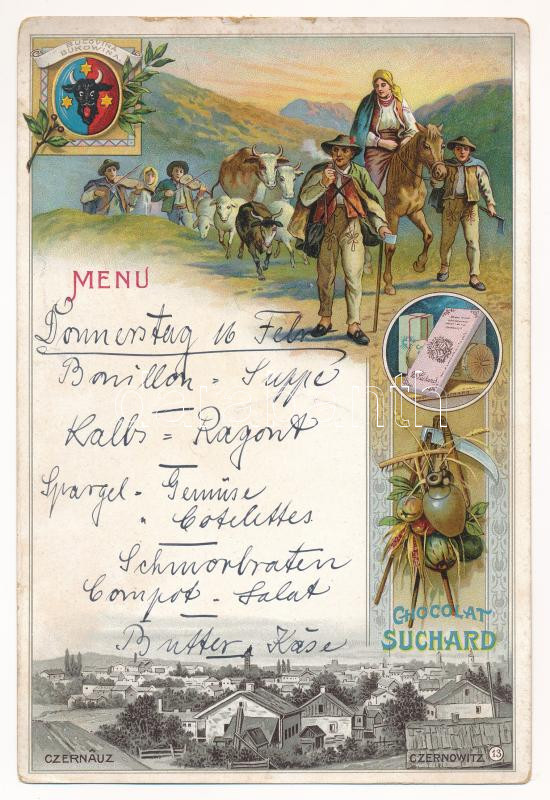 BUCOVINA
BUKOWINA
MENU
Donnerstag 16 Febr
Bouillon = Suppe
Kalbs = Ragout
Spargel = Gemüse
" Cotelettes
Schmorbraten
Compot = Salat
Butter, Käse
Suchard
CHOCOLAT
SUCHARD
CZERNÂUZ
CZERNOWITZ 13